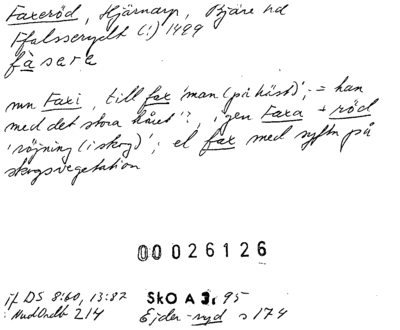 Faxeröd, Hjärnarp, Bjäre hd
Ffalsserydt (!) 1499
fàsara
mn Faxi, till fax 'man (på häst)'; = han
med det stora håret'?, i gen Faxa + röd
'röjning (i skog)'; el fax med syftn på
skogsvegetation
00026126
jf DS 8:60, 13:87 SkO A 3, 95
NudOndb 214 Ejder-ryd s 174